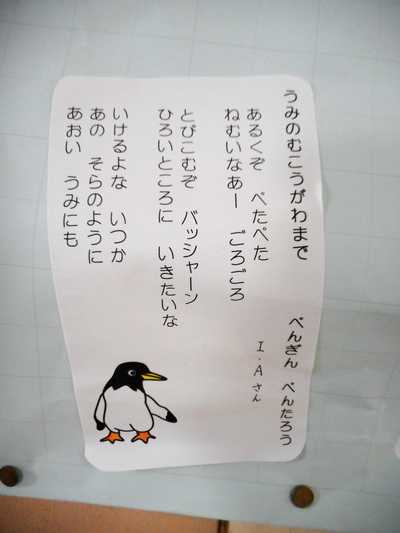 うみのむこうがわまで
ぺんぎん ぺんたろう
I．Aさん
あるくぞ ぺたぺた
ねむいなあー ごろごろ
とびこむぞ バッシャーン
ひろいところに いきたいな
いけるよな いつか
あの そらのように
あおい うみにも